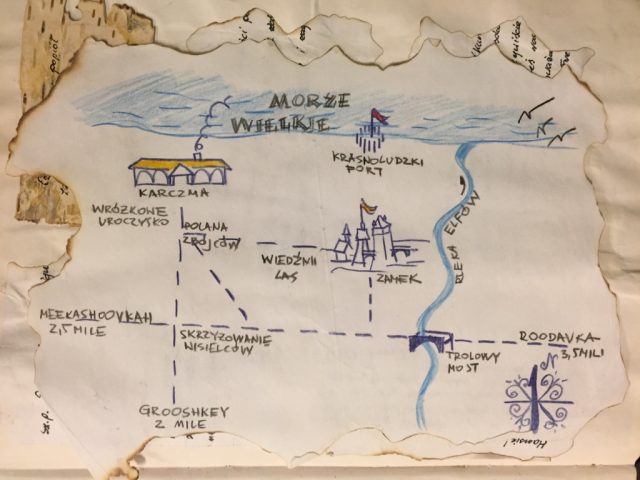 MORZE
WIELKIE
KRASNOLUDZKI
PORT
KARCZMA
WRÓŻKOWE
UROCZYSKO
POLANA
ZBÓJCÓW
RZEKA ELFÓW
WIEDŹMI
LAS
ZAMEK
MEEKASHOOVKAH
2,5 MILE
SKRZYŻOWANIE
WISIELCÓW
TROLOWY
MOST
ROODAVKA-
3,5 MILI
N
GROOSHKEY
2 MILE